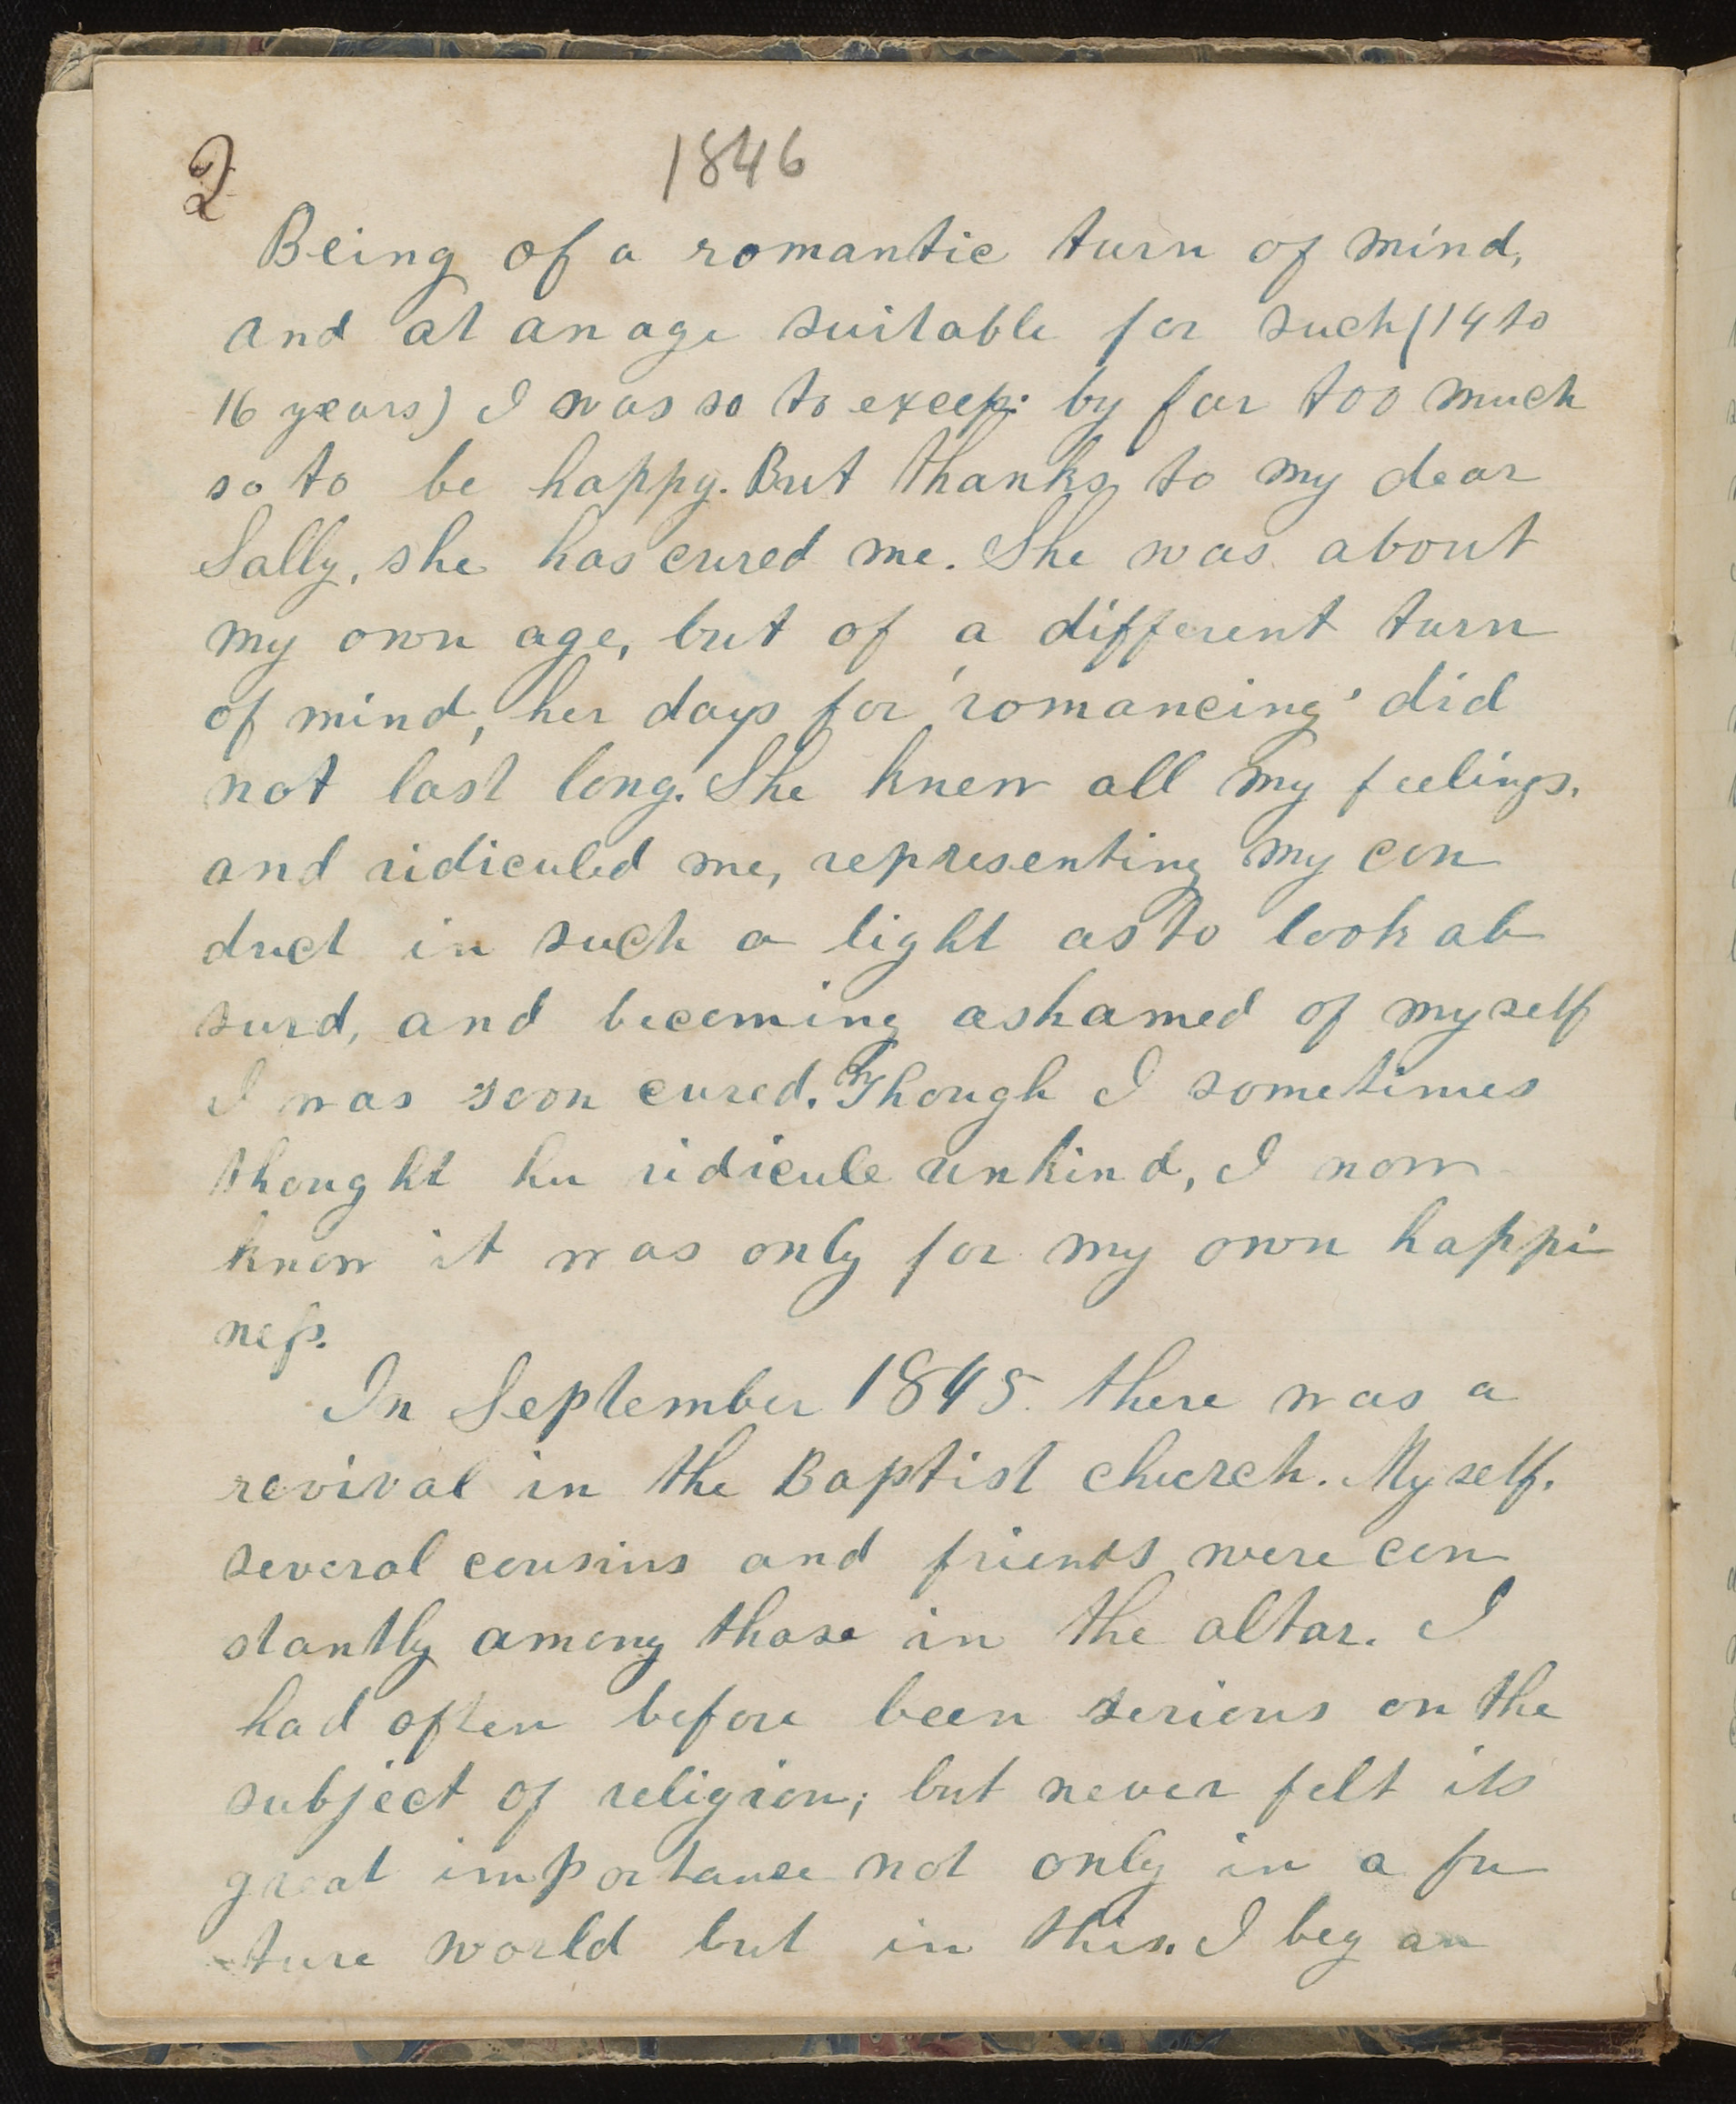 2
1846
Being of a romantic turn of mind,
and at an age suitable for such (14 to
16 years) I was so to excep. by far too much
so to be happy. But thanks to my dear
Sally, she has cured me. She was about
my own age, but of a different turn
of mind, her days for 'romancing' did
not last long. She knew all my feelings,
and ridiculed me, representing my con
duct in such a light as to look ab
surd, and becoming ashamed of myself
I was soon cured. Though I sometimes
thought her ridicule unkind, I now
know it was only for my own happi
ness.
In September 1845. there was a
revival in the Baptist church. Myself.
several cousins and friends were con
stantly among those in the altar. I
had often before been serious on the
subject of religion; but never felt its
great importance not only in a fu
ture world but in this. I began